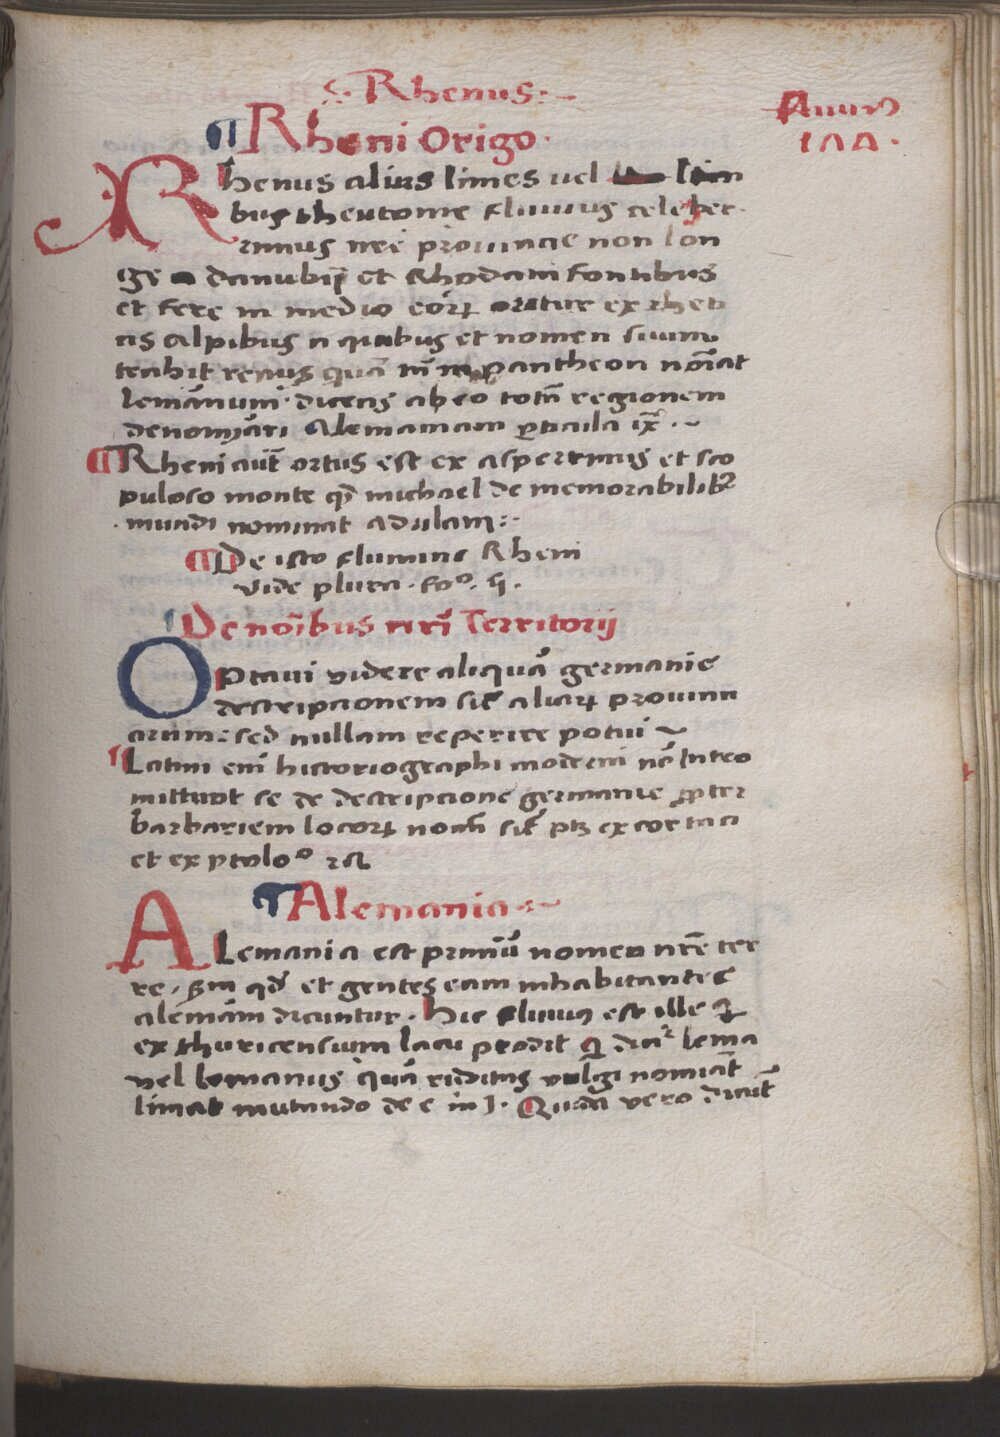 Rhenus
¶ Rheni Origo
Rhenus alius limes uel lim
bus theutonie fluuius celeber
rimus nrē prouincie non lon
ge danubij et Rhodani fontibus
et fere in medio eorꝝ oritur ex rheti
cis alpibus a quibus et nomen suum
trahit renus quā pantheon noīat
lemānum dicens ab eo totā regionem
denomīari Alemaniam ꝑticula ix
¶ Rheni aūt ortus est ex asperrimis et sco
puloso monte qđ michael de memorabilibꝰ
mundi nominat adulam
¶ De isto flumine Rheni
vide plura fo°
¶ De noībus nrī Territorij
Optaui videre aliquā germanie
descripcionem sic̄ aliarꝝ prouinci
arum sed nullam reperire potui
¶ Latini enī historiographi moderni nō Intro
mittunt se de descripcione germanie ꝓpter
barbariem locorꝝ nom̄ sic̄ ptꝫ ex
et ex ptolo°
¶ Alemania
Alemania est primū nomen nrē ter
re qđ et gentes eam inhabitantes
alemāni dicuntur. Hic fluuiꝰ est ille
ex thuricensium lacu prodit lema
vel lemanus quā vulgi nomīat
limat mutando de e in I. Quidā vero dicūt